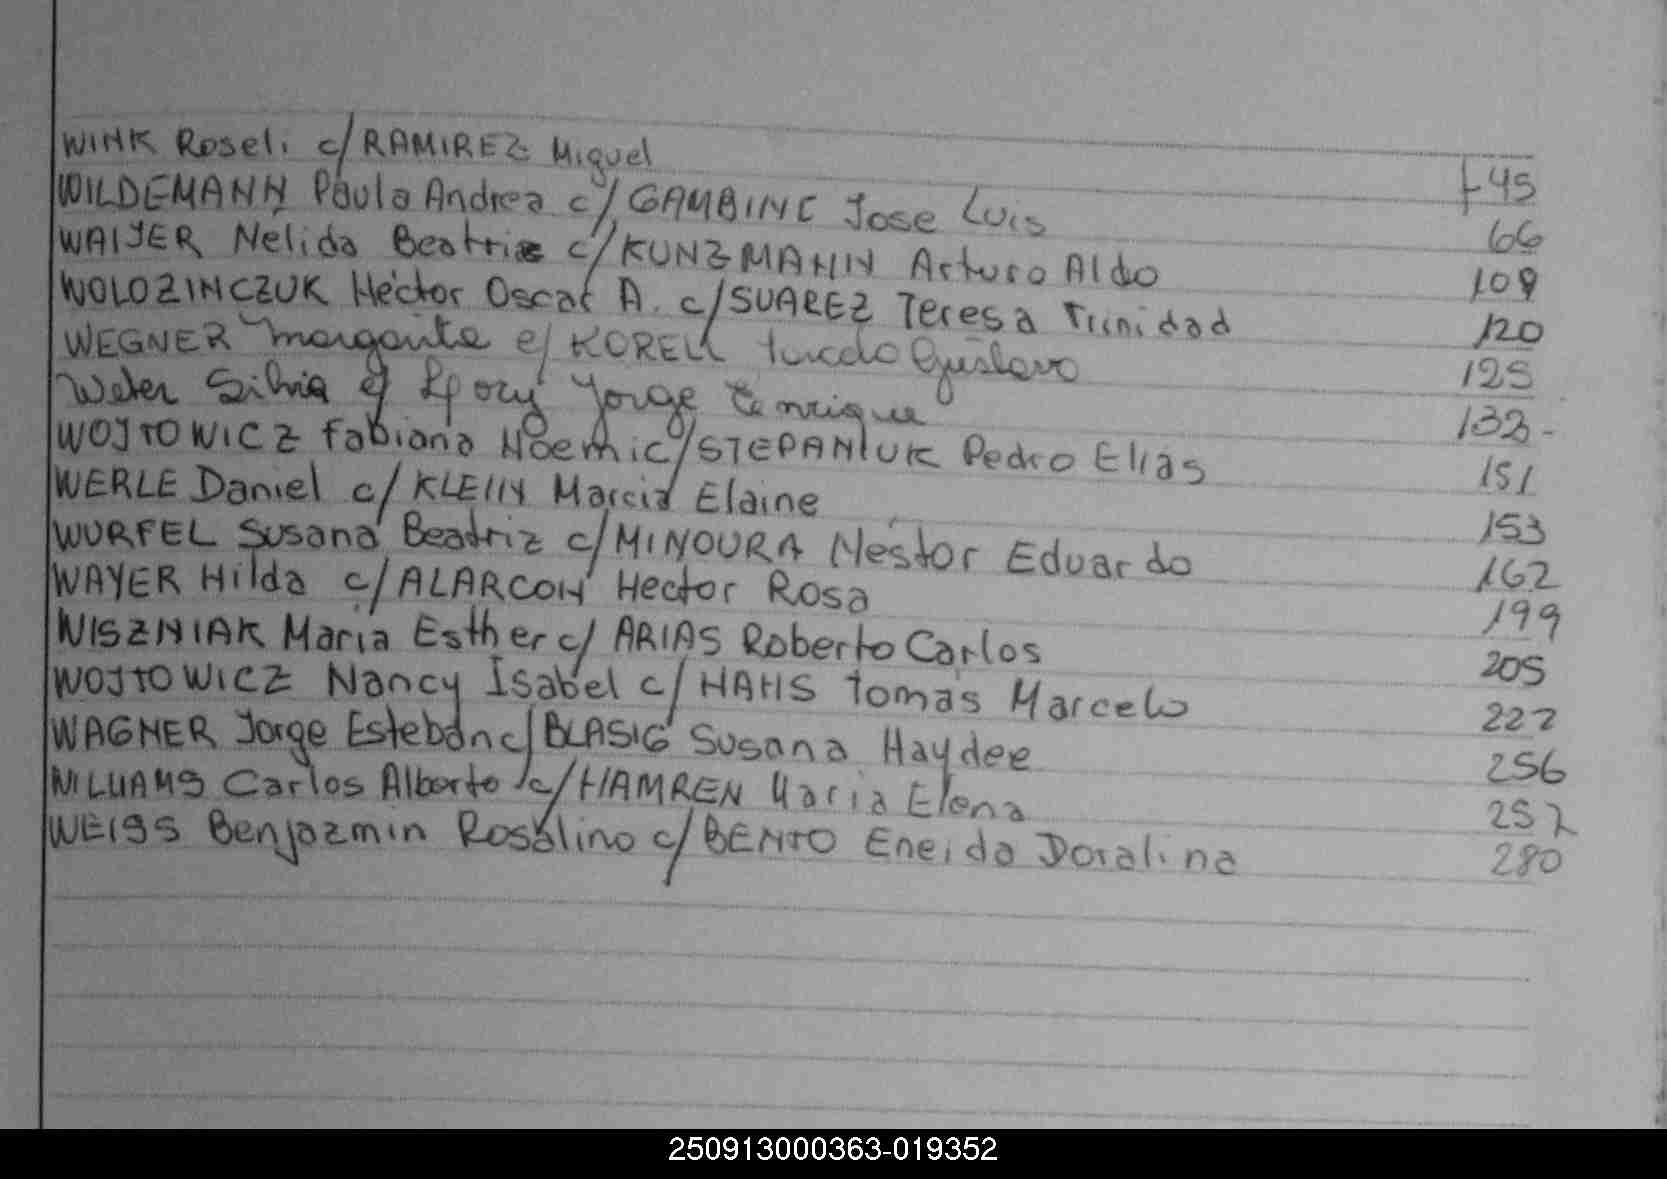 WINK Roseli c/RAMIREZ Miguel f 45
WILDEMANN Paula Andrea c/ GAMBINC Jose Luis 66
WAIJER Nelida Beatriz c/KUNZMANN Arturo Aldo 109
WOLOZINCZUK Héctor Oscar A. c/SUAREZ Teresa Trinidad 120
WEGNER Margarita c/ KORELL Gustavo 125
Weber Silvia c/ Jorge Enrique
WOJTOWICZ Fabiana Noemi c/STEPANIUK Pedro Elias 151
WERLE Daniel c/ KLEIN Marcia Elaine 153
WURFEL Susana Beatriz c/MINOURA Nestor Eduardo 162
WAYER Hilda c/ALARCON Hector Rosa 199
WISZNIAK Maria Esther c/ ARIAS Roberto Carlos 205
WOJTOWICZ Nancy Isabel c/HAHS Tomas Marcelo 222
WAGNER Jorge Esteban c/BLASIG Susana Haydee 256
WILLIAMS Carlos Alberto c/HAMREN Maria Elena 257
WEISS Benjazmin Rosalino c/BENTO Eneida Doralina 280
250913000363-019352